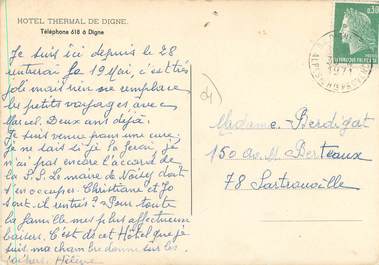 HOTEL THERMAL DE DIGNE.
Téléphone 618 à Digne
Je suis ici depuis le 28
le 19 Mai, c'est très
joli mais rien ne remplace
les petits voyages avec
Marcel. Deux ans déjà.
Je suis venue pour une cure,
je ne sais si je la ferai, je
n'ai pas encore l'accord de
la S.S. Le maire de Noisy doit
s'en occuper. Christiane et Jo
sont-ils Pour toute
la famille mes plus affectueux
baisers. C'est de cet Hôtel que j'é
suis ma chambre donne sur les
Hélène
(4)
Madame Berdigat
150 av. M. Berteaux
78 Sartrouville
0,30
POSTE FRANÇAISE
1971
ALPES